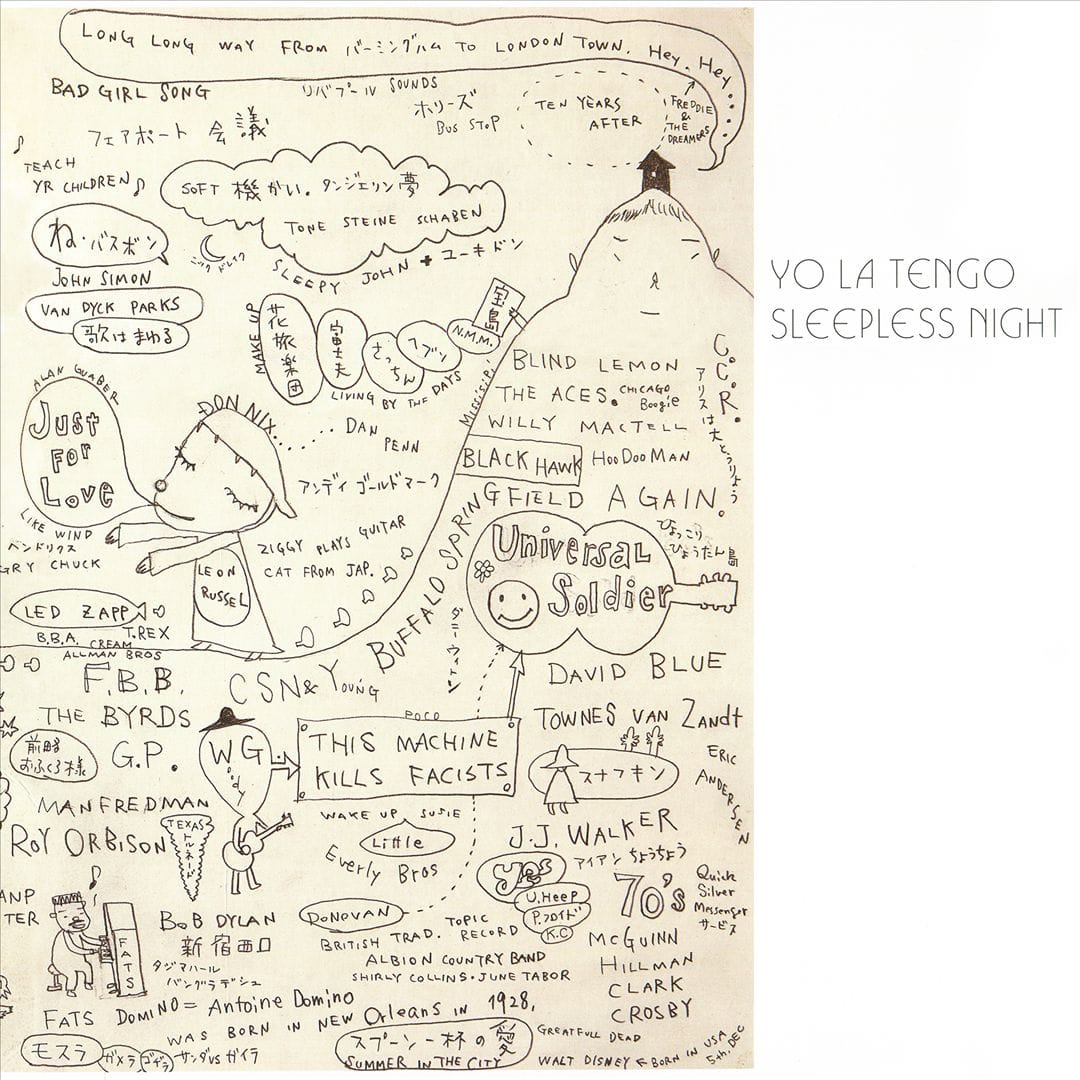 LONG LONG WAY FROM バーミングハム TO LONDON TOWN. HEY. HEY....
BAD GIRL SONG
リバプール SOUNDS
ホリーズ
BUS STOP
TEN YEARS
AFTER
FREDDIE
&
THE
DREAMERS
フェアポート 会議
TEACH
YR CHILDREN
SOFT 機かい. タンジェリン夢
TONE STEINE SCHABEN
ね・バスボン
JOHN SIMON
ニック ドレイク
SLEEPY JOHN + ユーキドン
VAN DYCK PARKS
歌はまわる
YO LA TENGO
SLEEPLESS NIGHT
MAKE UP
花旅楽団
富士夫
さっちん
ヘブン
N.M.M.
宝島
LIVING BY THE DAYS
Missis.P.
BLIND LEMON
THE ACES.
CHICAGO
Boogie
WILLY MACTELL
BLACK HAWK
HOODOOMAN
C.C.R.
アリスは大とうりょう
ALAN GUABER
Just
FOR
Love
DON NIX......
DAN
PENN
アンディ ゴールドマーク
LIKE WIND
ベンドリクス
GRY CHUCK
ZIGGY PLAYS GUITAR
CAT FROM JAP.
LEON
RUSSEL
BUFFALO SPRINGFIELD AGAIN.
Universal
Soldier
ひょっこり
ひょうたん島
LED ZAPP
T.REX
B.B.A. CREAM
ALLMAN BROS
ダニーウィトン
F.B.B.
CSN& YOUNG
DAVID BLUE
THE BYRDS
POCO
TOWNES VAN Zandt
前略
おふくろ様
G.P.
WG
oody
THIS MACHINE
KILLS FACISTS
スナフキン
ERIC
ANDERSEN
MANFREDMAN
WAKE UP SUSIE
ROY ORBISON
TEXAS
トルネード
Little
Everly Bros
J.J. WALKER
アイアン ちょうちょう
yes
U.HEEP
P.フロイド
K.C
70's
Quick
Silver
Messenger
サービス
ANP
TER
FATS
BOB DYLAN
新宿西口
タジマハール
バングラデシュ
DONOVAN
TOPIC
RECORD
BRITISH TRAD.
ALBION COUNTRY BAND
SHIRLY COLLINS・JUNE TABOR
McGUINN
HILLMAN
CLARK
CROSBY
FATS DOMINO = Antoine Domino
WAS BORN IN NEW Orleans IN 1928.
モスラ
ガメラ
ゴジラ
サンダVSガイラ
スプーン一杯の愛
SUMMER IN THE CITY
GREATFULL DEAD
WALT DISNEY ← BORN IN USA
5th. DEC